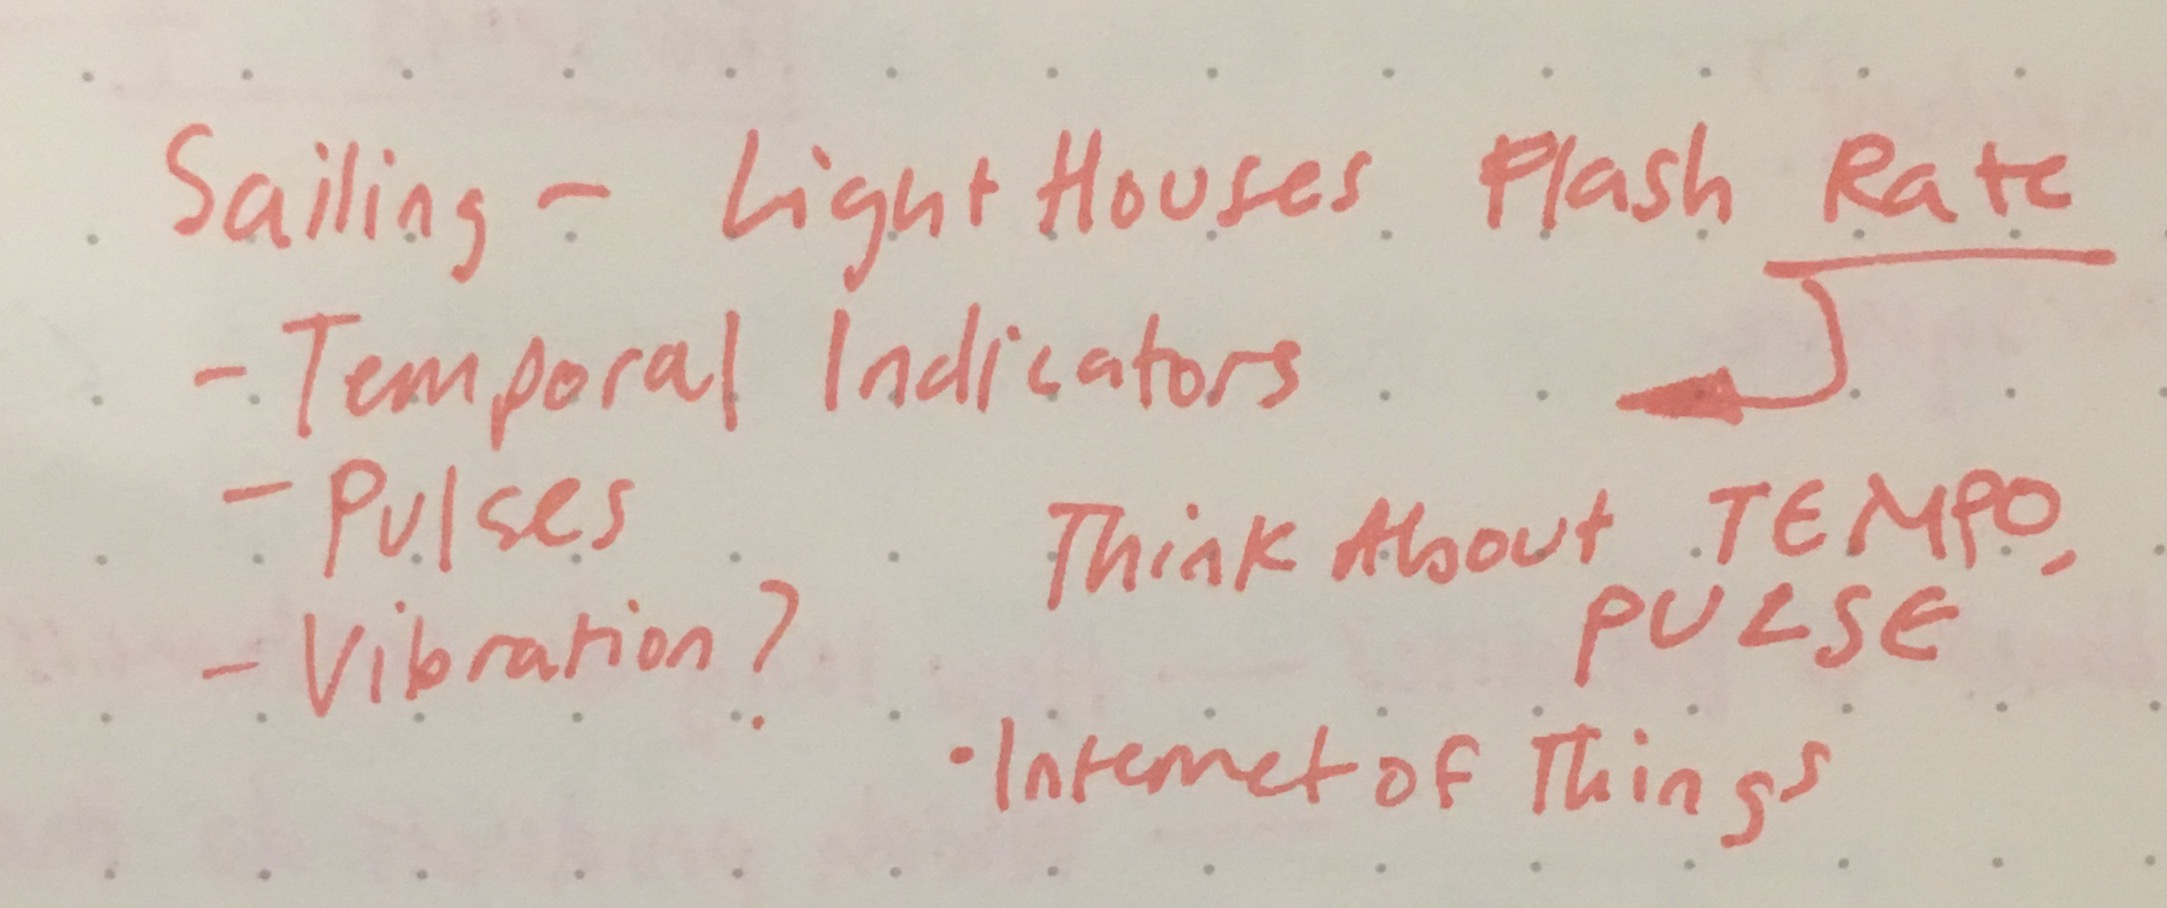 Sailing - Light Houses Flash Rate
- Temporal Indicators
- Pulses
- Vibration?
Think About TEMPO,
PULSE
• Internet of Things